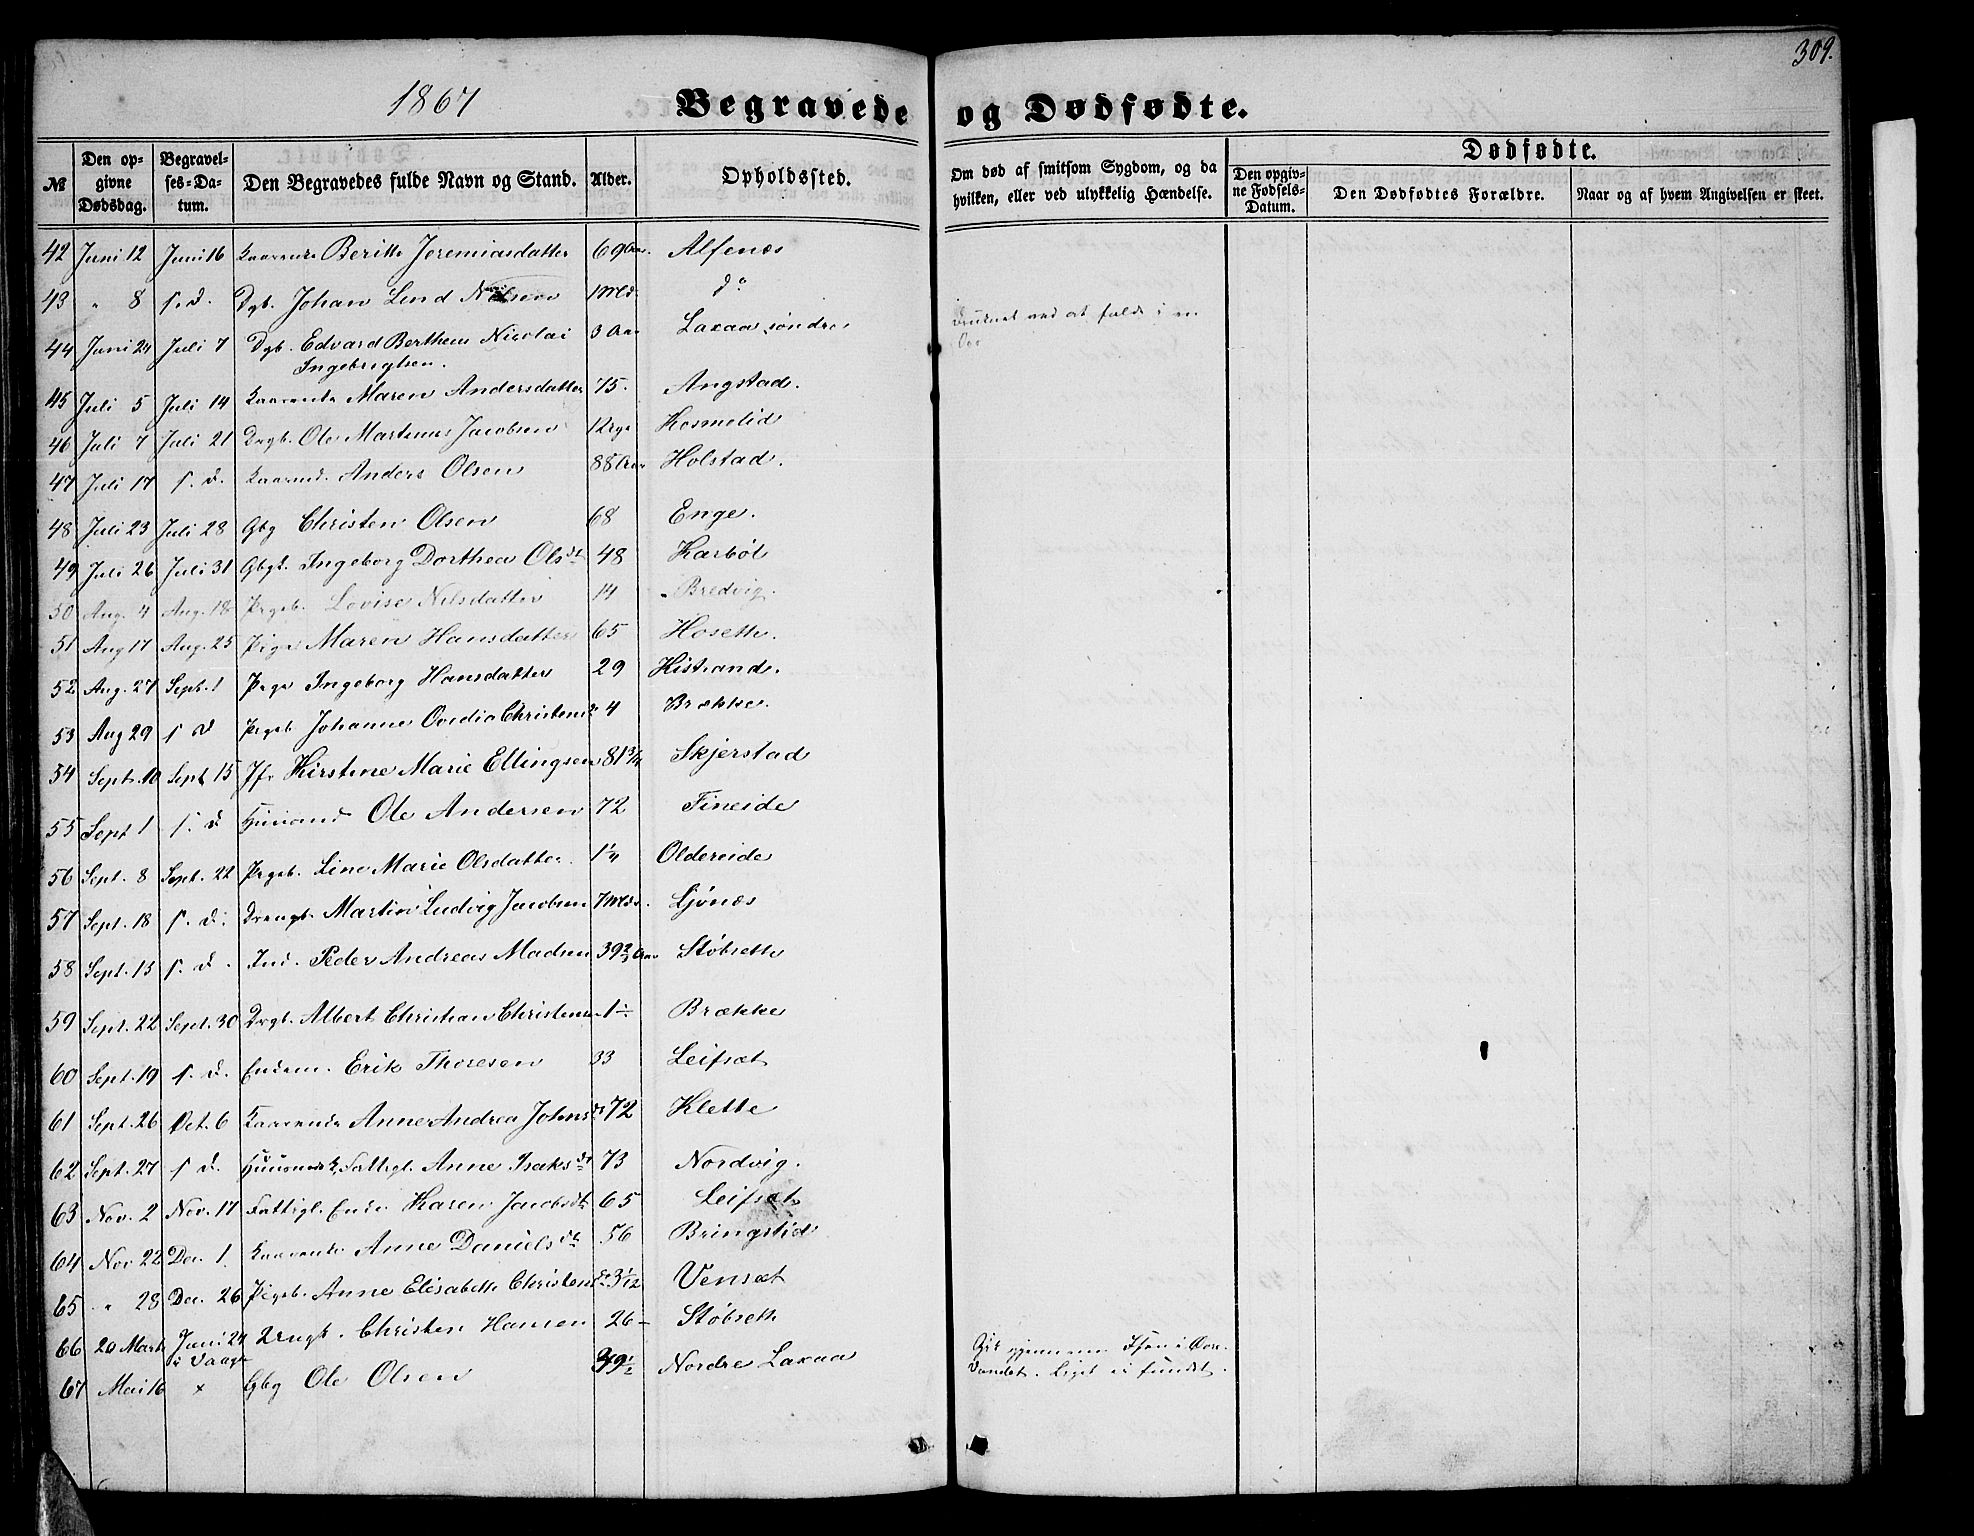 309.
1867
Begravede og Dødfødte.
№ Den opgivne Dødsdag. Begravelses-Datum. Den Begravedes fulde Navn og Stand. Alder. Opholdssted. Om død af smitsom Sygdom, og da hvilken, eller ved ulykkelig Hændelse. Dødfødte. Den opgivne Fødsels-Datum. Den Dødfødtes Forældre. Naar og af hvem Angivelsen er skeet.
42 Juni 12 Juni 16 Kaarenke Berith Jeremiasdatter 69 Aar. Alfenæs
43 " 8 s. d. Dgb. Johan Lind Nilsen 1 Md. do
44 Juni 24 Juli 7 Dgb. Edvard Bertheus Nicolai 3 Aar Laxaa søndre druknet ved at falde i en
Ingebrigtsen.
45 Juli 5 Juli 14 Kaarenke Maren Andersdatter 75. Angstad.
46 Juli 7 Juli 21 Drgb. Ole Martinus Jacobsen 12 Kosmolid
47 Juli 17 s. d. Kaarmd. Anders Olsen 88 Aar Holstad.
48 Juli 23 Juli 28 Gbg Christen Olsen 68 Enge.
49 Juli 26 Juli 31 Gbgk. Ingeborg Dorthea Olsdt 48 Karbøl
50 Aug. 4 Aug. 18 Pigeb. Lovise Nilsdatter 14 Bredvig.
51 Aug 17 Aug. 25 Pige Maren Hansdatter 65 Hosette.
52 Aug. 27 Sept. 1 Pige Ingeborg Hansdatter 29 Kistrand.
53 Aug 29 s d Pigeb. Johanne Ovidia Christensdt 4 Brække.
54 Sept. 10 Sept 15 Jfr Kirstine Marie Ellingsen 81 3/4 Skjerstad
55 Sept 1 s. d Huusmd Ole Andersen 72 Fineide
56 Sept. 8 Sept. 22 Pigeb. Line Marie Olsdatter 1 1/4 Oldereide
57 Sept. 18 s. d. Drengb. Martin Ludvig Jacobsen 7 Mdr. Ljønæs
58 Sept. 15 s. d. Ind. Peder Andreas Madsen 39 2/3 Aar Støbsette
59 Sept. 22 Sept. 30 Drgb. Albert Christian Christensen 1 Brække
60 Sept. 19 s. d. Enkem. Erik Thoresen 33 Leifsæt
61 Sept. 26 Oct. 6 Kaarenke Anne Andrea Johnsdt 72 Klette
62 Sept. 27 s d. Huusmdsk. Fattigl. Anne Isaksdt 73 Nordvig.
63 Nov. 2 Nov. 17 Fattigl. Enke Karen Jacobsdt 65 Leifsæt
64 Nov 22 Dec. 1 Kaarenke Anne Danielsdt 56 Bringslid
65 " 28 Dec. 26 Pigeb. Anne Elisabeth Christensdt 3 1/12 Vensæt
66 20 Marts Juni 24 Drngb. Christen Hansen 26 Støbseth
i Vaage
67 Mai 16 x Gbg Ole Olsen 49 1/2 Nordre Laxaa Gik gjennem Isen i
Vandet. Liget ei fundet.